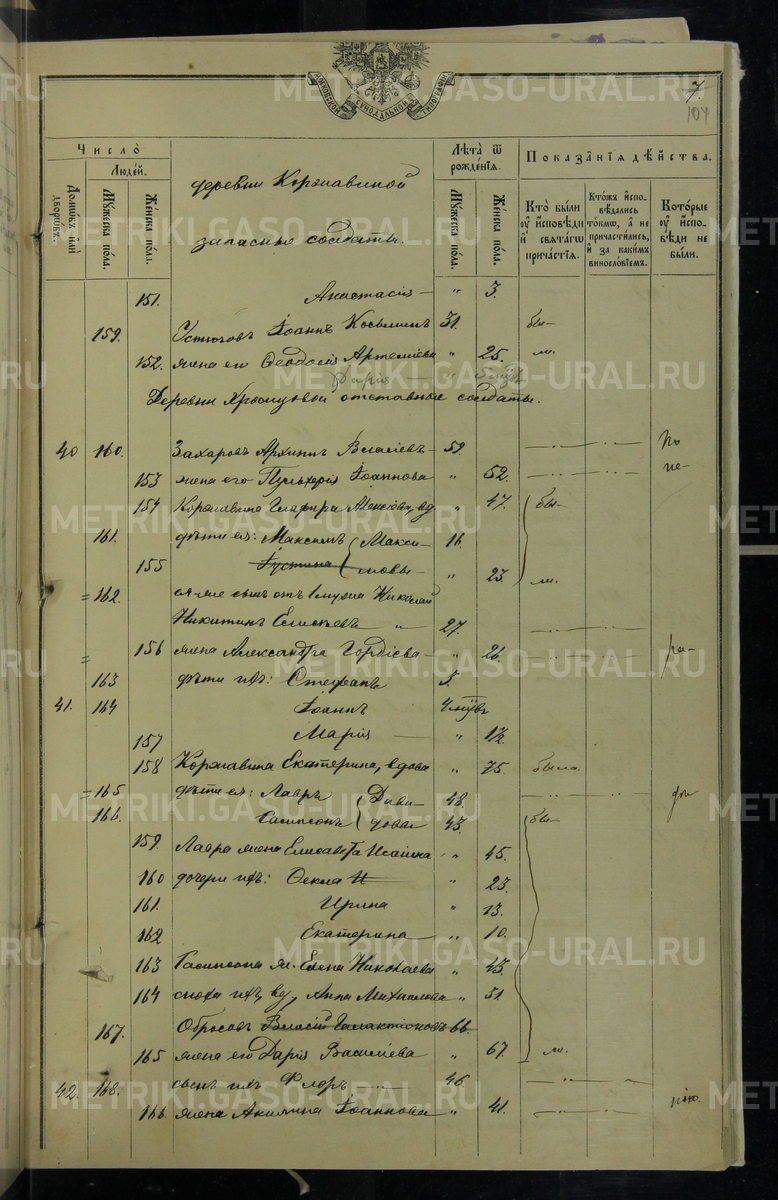 МОСКОВСКОЙ СѴНОДАЛЬНОЙ ТИПОГРАФІИ
7.
104
Число̀
Людей.
Домѡвъ или дворѡвъ.
Мꙋжеска по́ла.
Же́нска по́ла.
деревни Коржавиной
запасные солдаты.
Лѣта̀ ѿ рожде́нїѧ.
Мꙋжеска по́ла.
Же́нска по́ла.
Показанїѧ дѣйства.
Кто̀ были ꙋ исповѣди и свѧтагѡ причастїѧ.
Кто̀жъ исповѣдались то́кмѡ, а не причасти́лись, и за какимъ винословїемъ.
Которые ꙋ исповѣди не были.
151. Анастасія — " 3.
159. Устюговъ Іоаннъ Косьминъ 31. бы-
152. жена его Ѳеодосія Артеміева " 25. ли.
Дарія — "
Деревни отставные солдаты.
40 160. Захаровъ Архиппъ Власіевъ — 59. по
153 жена его Пульхерія Іоаннова " 52. не-
154 Коржавина Глафира вд. " 47. бы-
161. дѣти ея: Максимъ Макси- 16.
155 Іустина мовы — " 23. ли.
= 162. ея-же сынъ отъ 1 мужа Николай
Никитинъ Елисѣевъ " 27.
= 156 жена Александра Гордѣева — " 26. ра-
163 дѣти ихъ: Стефанъ 5.
41. 164 Іоаннъ 4 мѣс
157 Марія — " 1½
158 Коржавина Екатерина, вдова " 75. была.
= 165 дѣти ея: Лавръ Дави- 48.
166. Сампсонъ довы 43. бы-
159. Лавра жена Елисавета Исаіина " 45.
160 дочери ихъ: Ѳекла И " 23.
161. Ирина " 13.
162 Екатерина — " 10.
163 Сампсона ж. Елена Николаева " 45.
164 сноха ихъ, вд, Анна Михаилова " 51.
167. Обросовъ Власій Галактіоновъ 66.
165 жена его Дарія Василіева " 67. ли.
42. 168. сынъ ихъ Флоръ — 46.
166. жена Акилина Іоаннова " 41.
METRIKI.GASO-URAL.RU